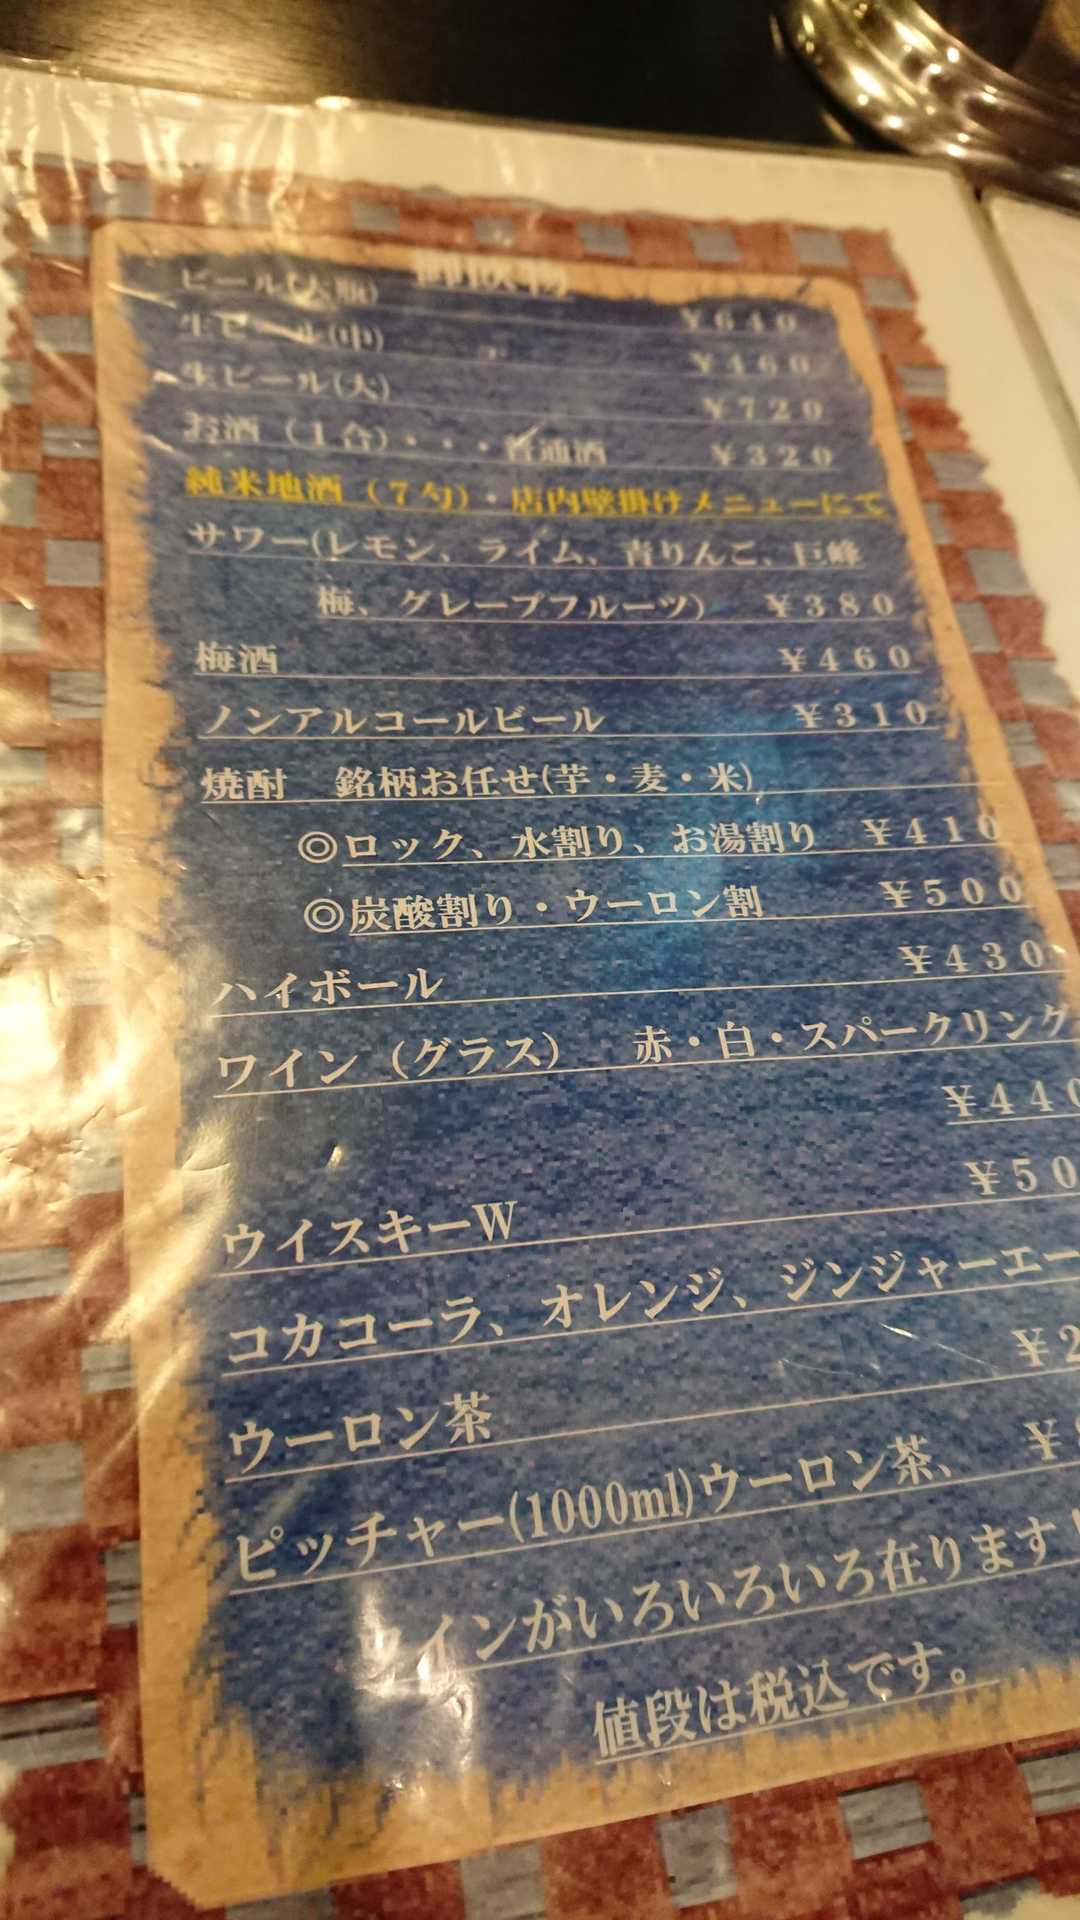 御飲物
ビール(大瓶) ￥６４０
生ビール(中) ￥４６０
生ビール(大) ￥７２０
お酒（１合）・・・普通酒 ￥３２０
純米地酒（７勺）・店内壁掛けメニューにて
サワー(レモン、ライム、青りんご、巨峰
梅、グレープフルーツ） ￥３８０
梅酒 ￥４６０
ノンアルコールビール ￥３１０
焼酎　銘柄お任せ(芋・麦・米)
◎ロック、水割り、お湯割り ￥４１０
◎炭酸割り・ウーロン割 ￥５００
ハイボール ￥４３０
ワイン（グラス）　赤・白・スパークリング
￥４４０
ウイスキーW ￥５０
コカコーラ、オレンジ、ジンジャーエー
ウーロン茶 ￥２
ピッチャー(1000ml)ウーロン茶、 ￥
ワインがいろいろいろ在ります！
値段は税込です。